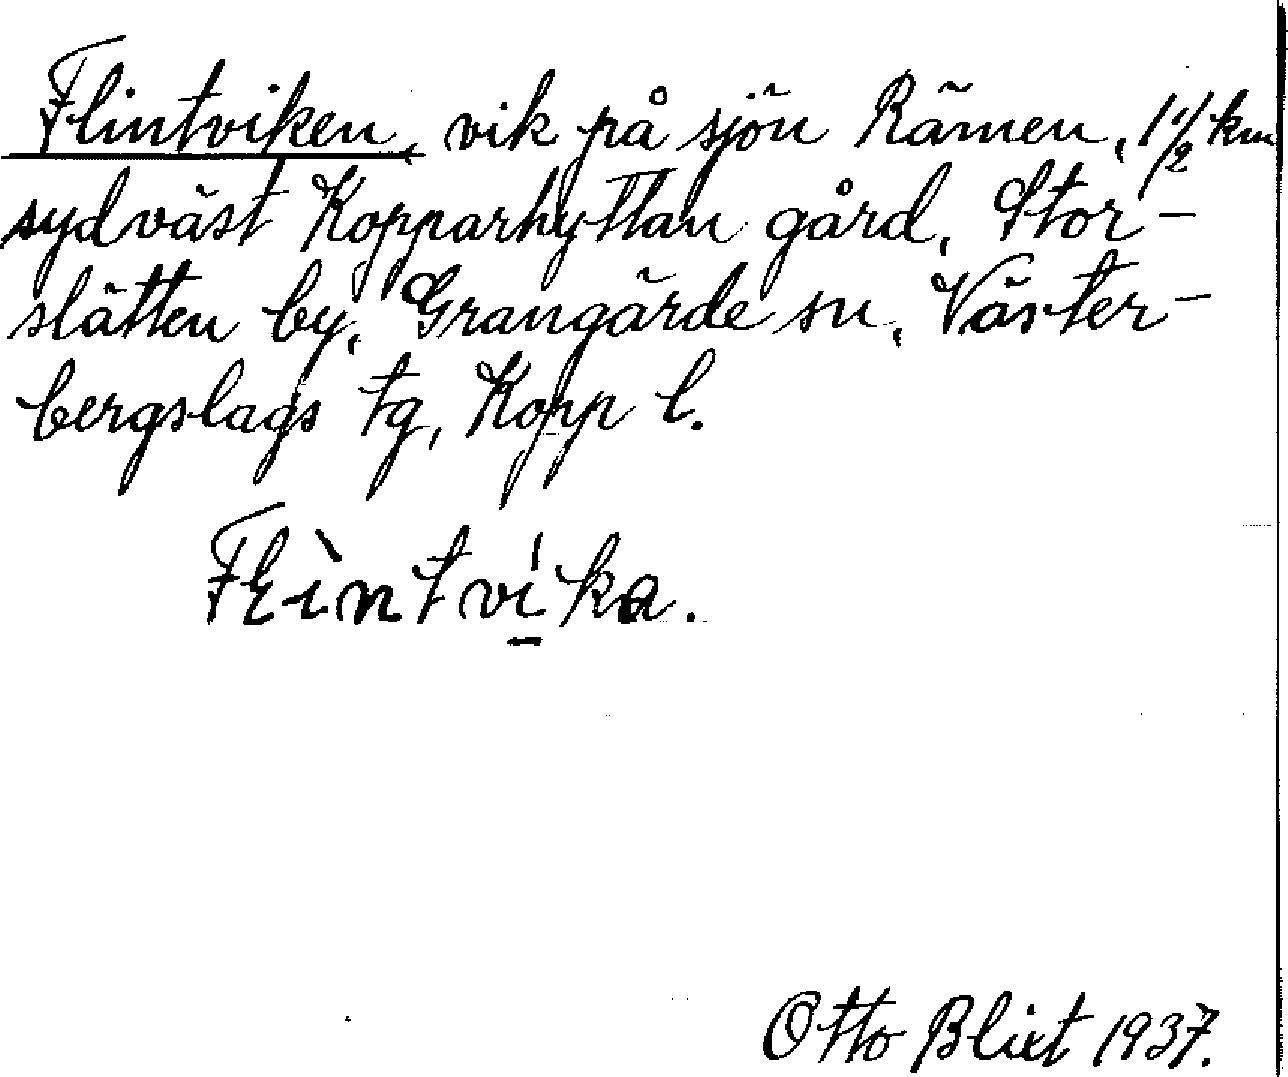 Flintviken, vik på sjön Rämen, 1 1/2 km
sydväst Kopparhyttan gård, Stor-
slätten by, Grangärde sn, Väster-
bergslags tg, Kopp l.
Flìntvíka.
Otto Blixt 1937.